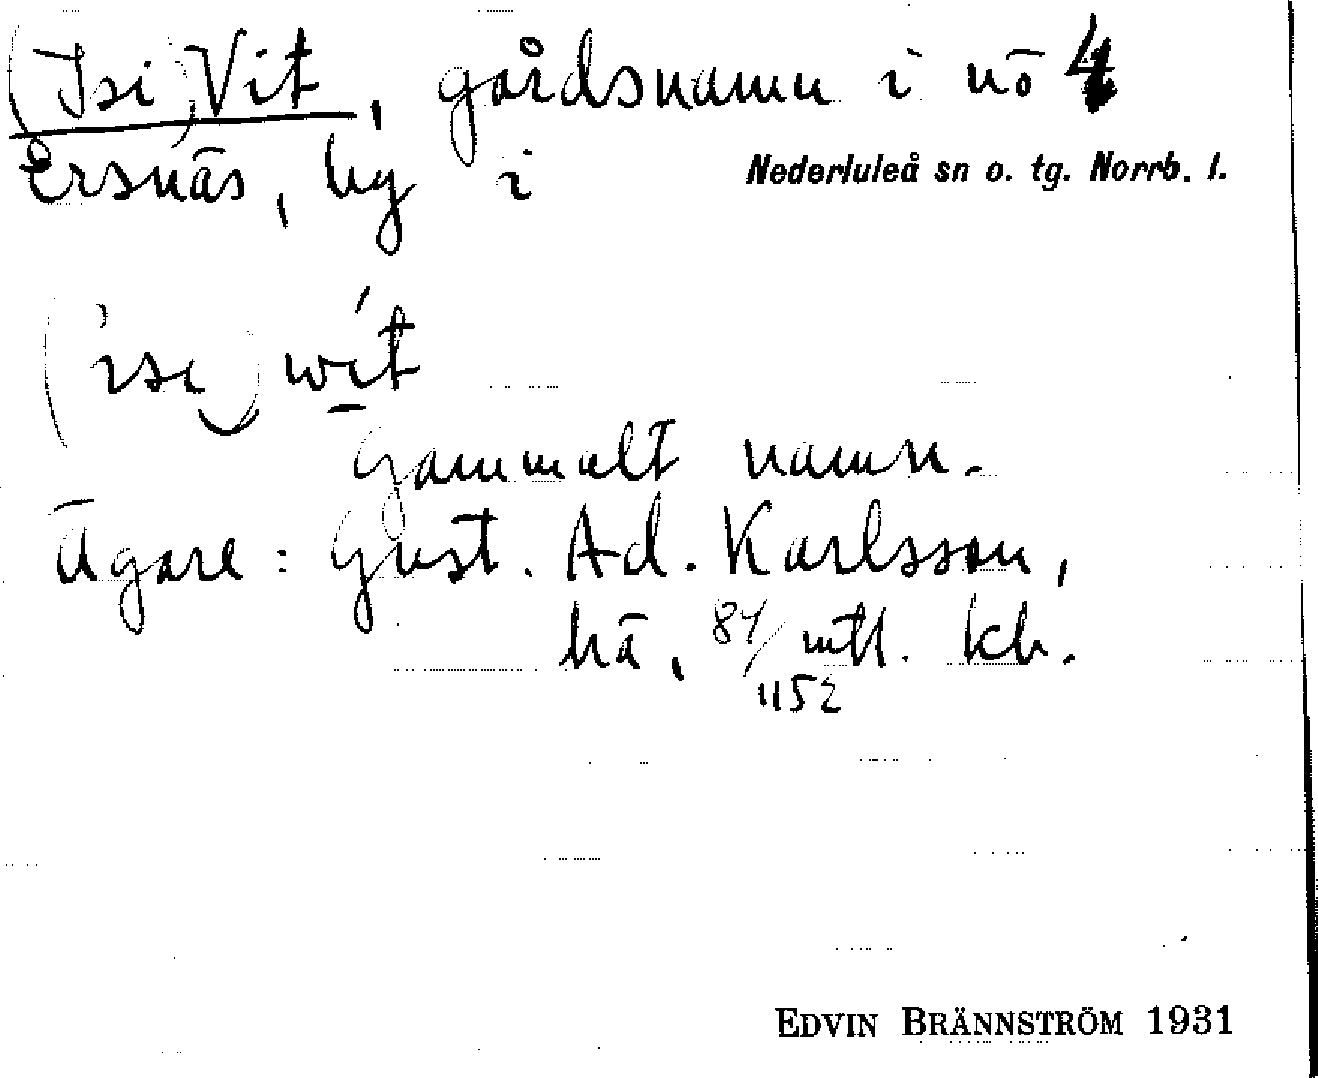 (Isi) Vit, gårdsnamn i nō 4
Ersnäs, by i Nederluleå sn o. tg. Norrb. l.
(ise) wit
Gammalt namn.
Ägare: Gust. Ad. Karlsson,
hā, 84/1152 mtl. kb.
EDVIN BRÄNNSTRÖM 1931